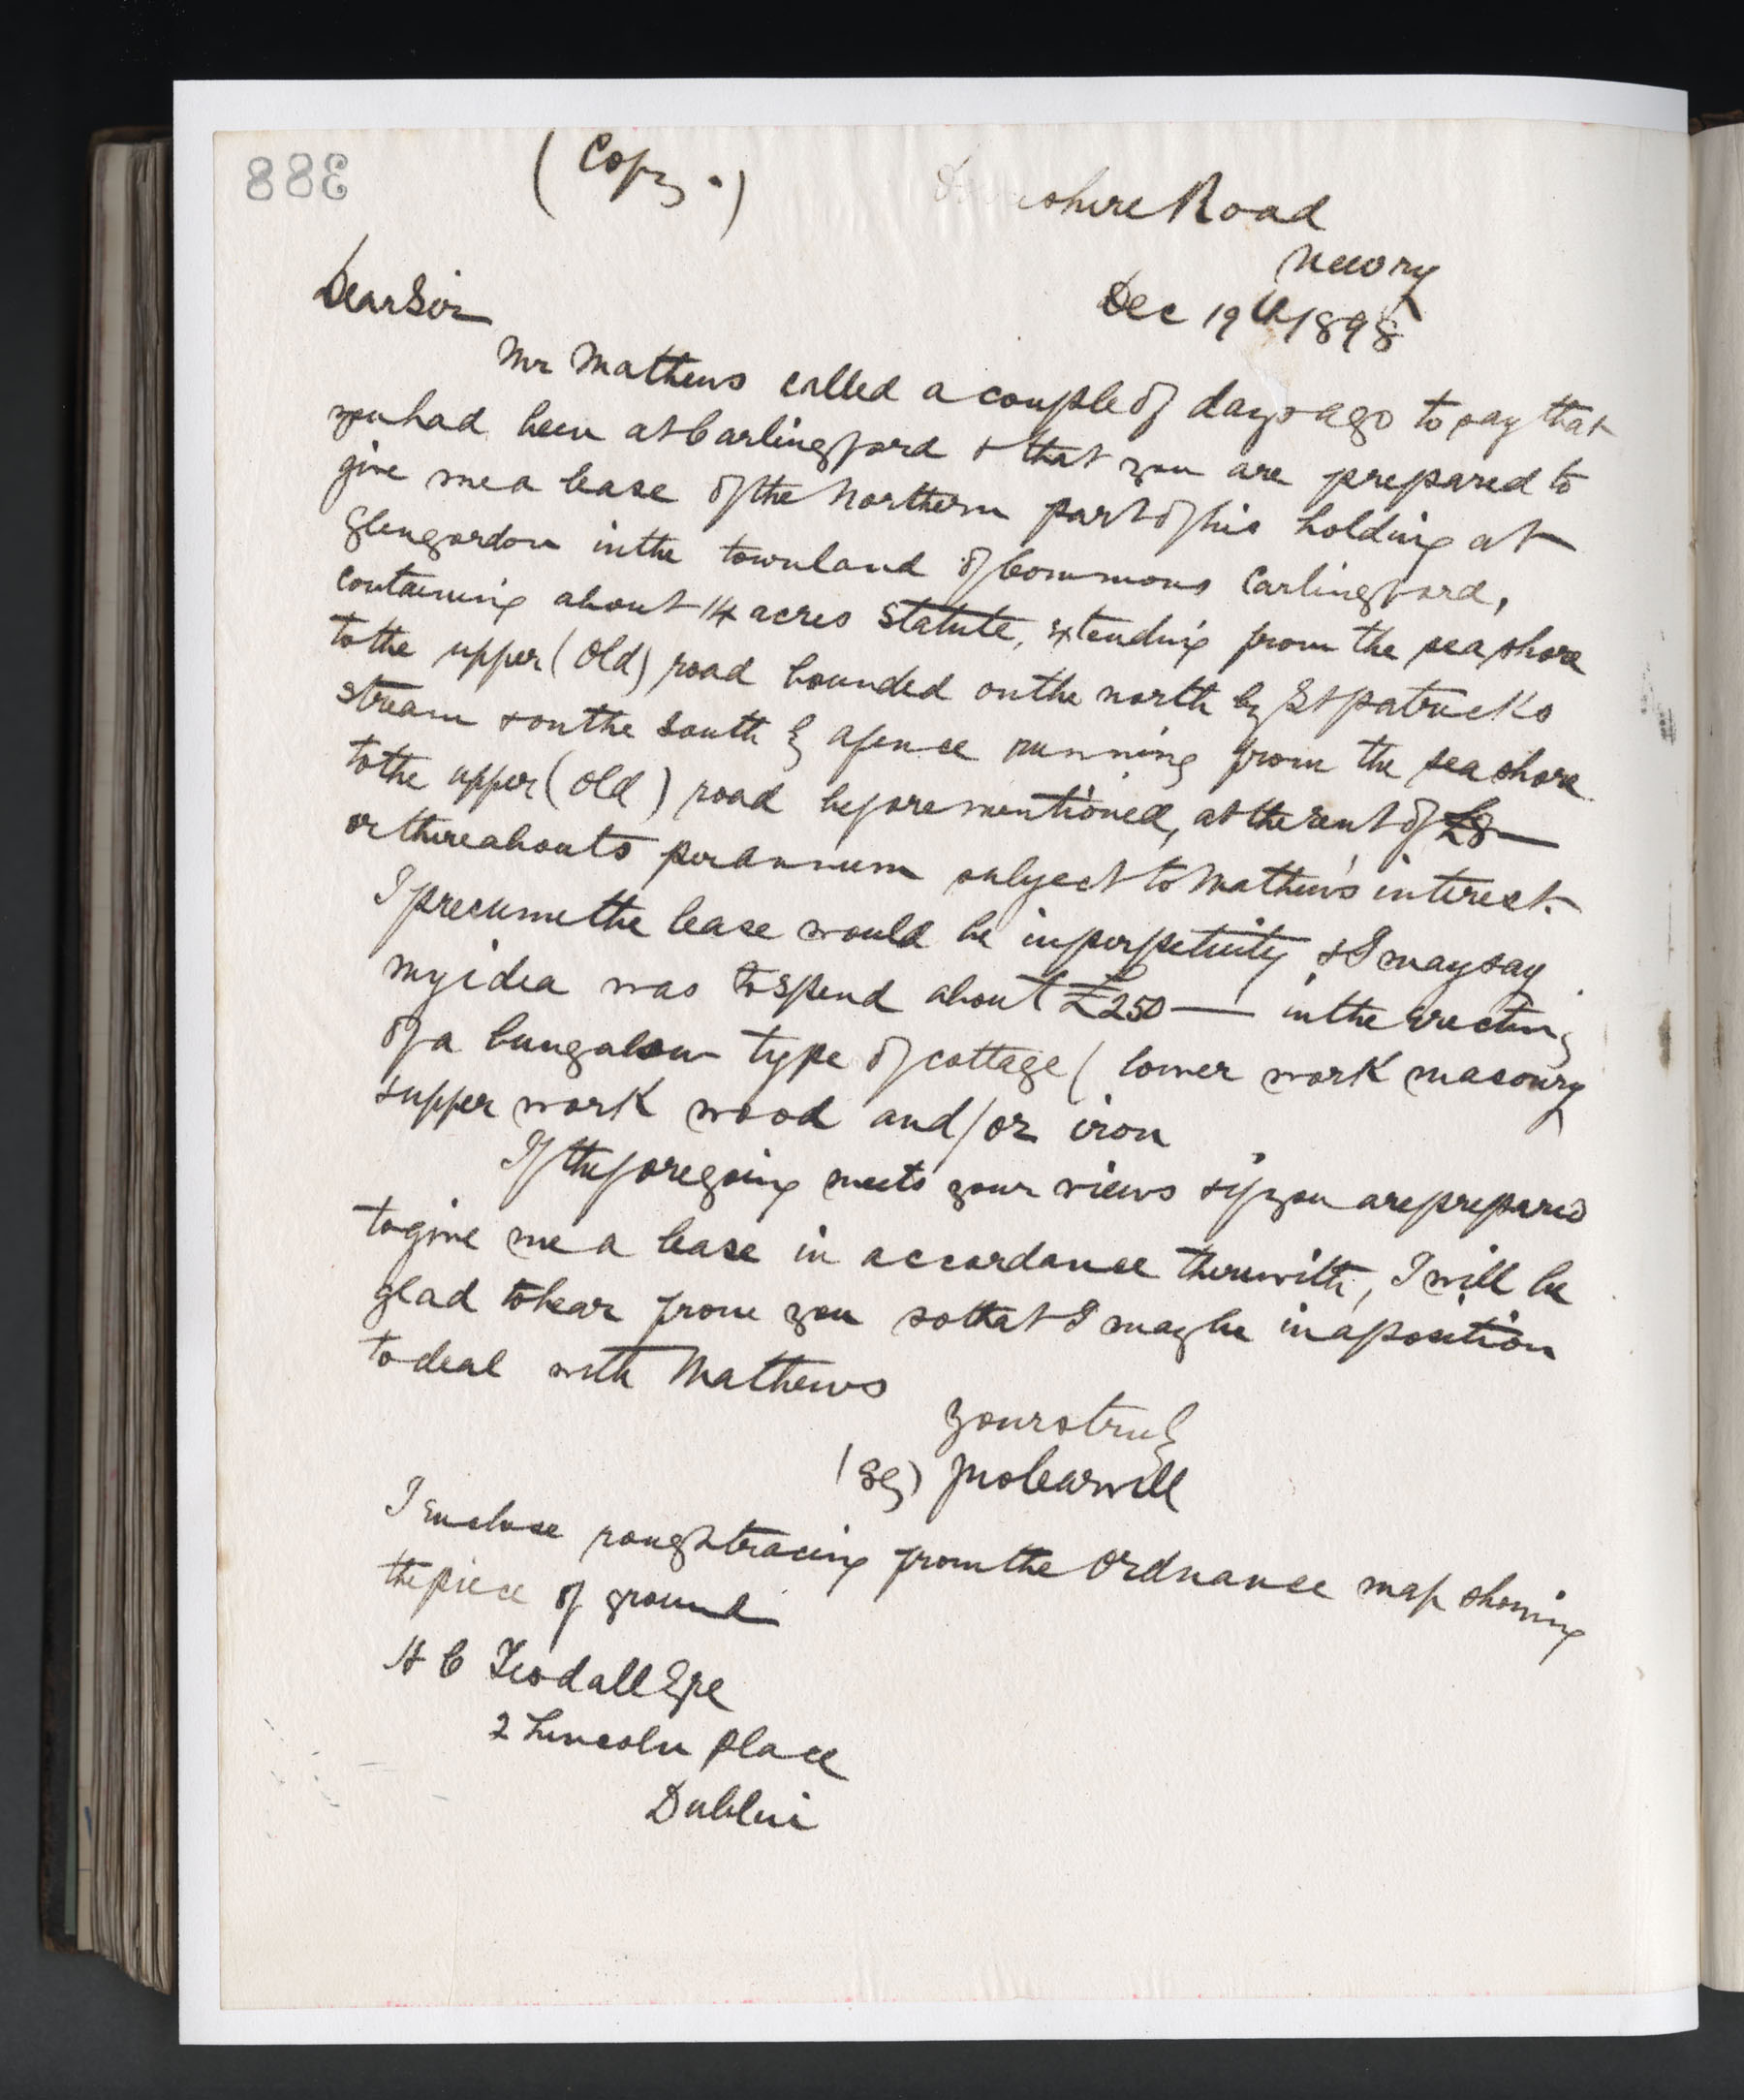 388
(Copy.)
Devonshire Road
Newry
Dec 19th 1898
Dear Sir
Mr Mathews called a couple of days ago to say that
you had been at Carlingford & that you are prepared to
give me a lease of the Northern part of his holding at
Glengardon in the townland of Commons Carlingford,
containing about 14 acres statute, extending from the sea shore
to the upper (Old) road bounded on the north by St Patricks
stream & on the south by a fence running from the sea shore
to the upper (Old) road before mentioned, at the rent of £8—
or thereabouts per annum subject to Mathews interest.
I presume the lease would be in perpetuity & I may say
my idea was to spend about £250 — in the erecting
of a bungalow type of cottage (lower work masonry
& upper work wood and/or iron
If the foregoing meets your views & if you are prepared
to give me a lease in accordance therewith, I will be
glad to hear from you so that I may be in a position
to deal with Mathews
Yours truly
(Sg)
I enclose rough tracing from the Ordnance map showing
the piece of ground
H C Tisdall Esqe
2 Lincoln Place
Dublin